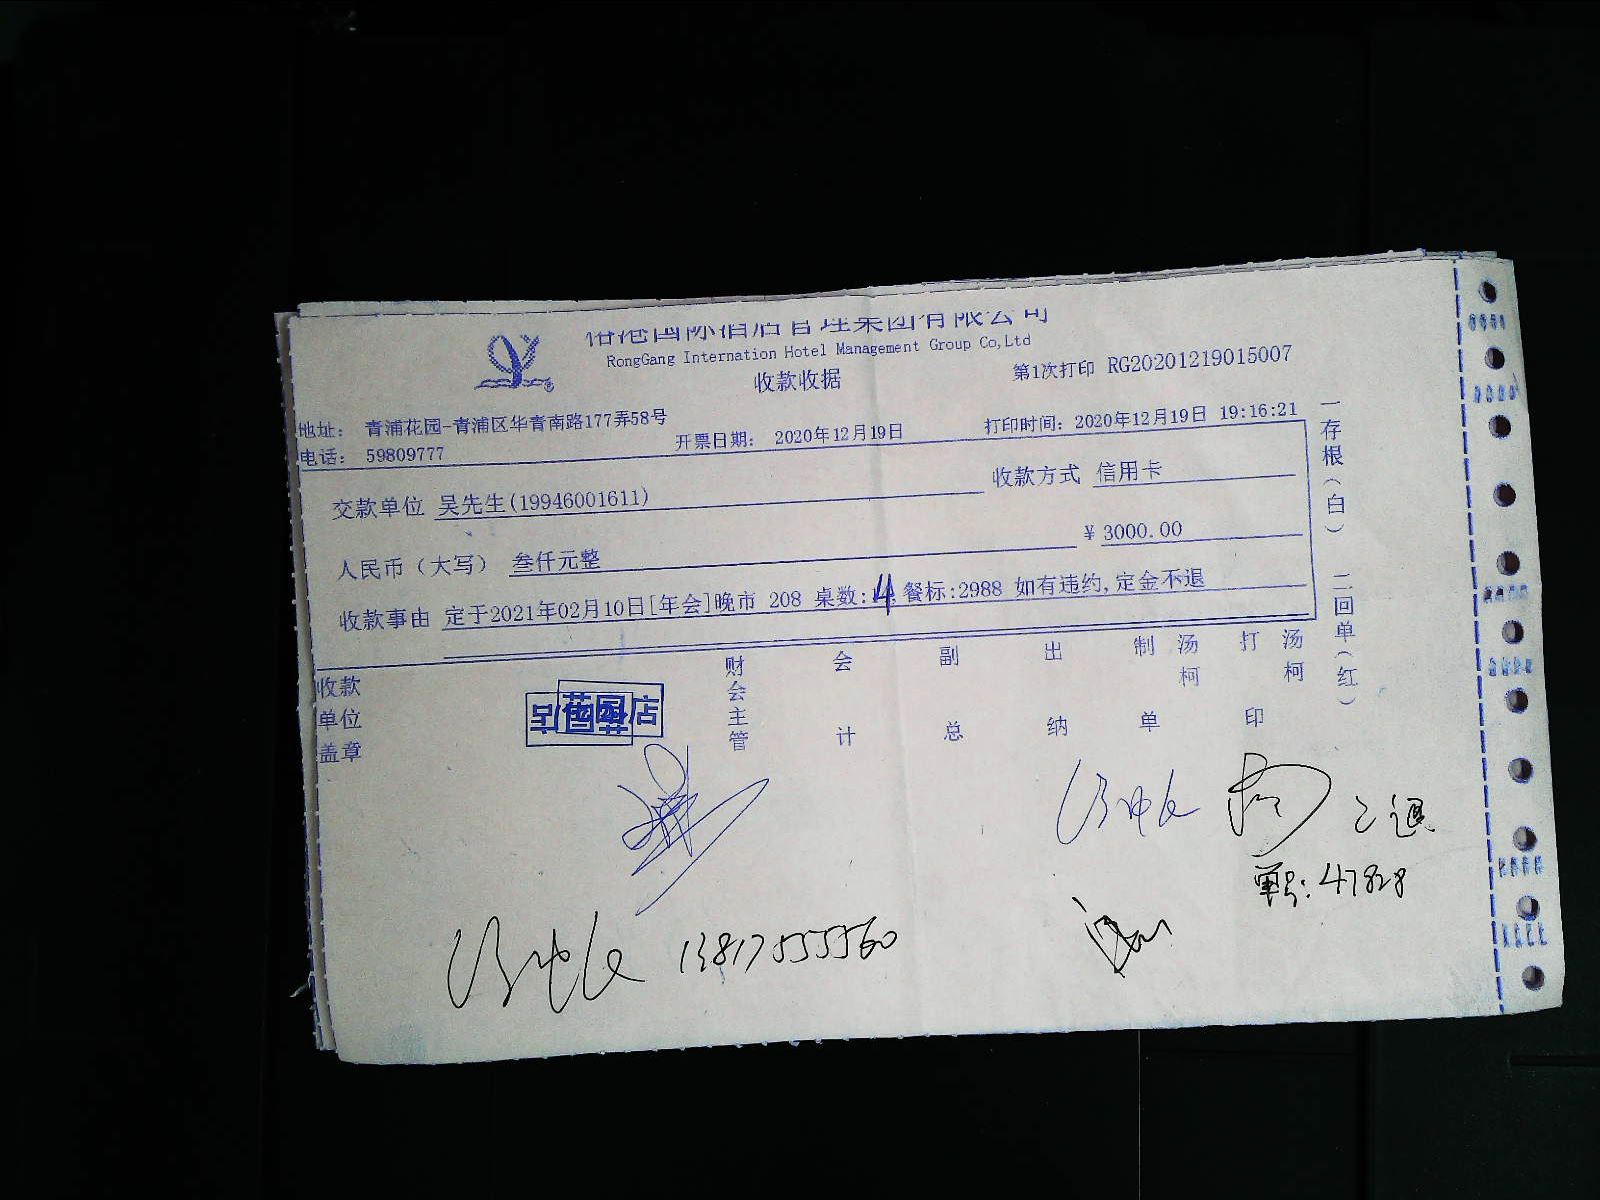 国际酒店管理集团有限公司
RongGang Internation Hotel Management Group Co,Ltd
收款收据
第1次打印 RG20201219015007
地址： 青浦花园-青浦区华青南路177弄58号
电话： 59809777
开票日期： 2020年12月19日
打印时间： 2020年12月19日 19:16:21
交款单位 吴先生(19946001611)
收款方式 信用卡
人民币（大写） 叁仟元整
¥ 3000.00
收款事由 定于2021年02月10日[年会]晚市 208 桌数:4 餐标:2988 如有违约,定金不退
收款单位盖章
财会主管
会计
副总
出纳
制单 汤柯
打印 汤柯
一存根(白) 二回单(红)
花园店
单号: 47828
13817555560